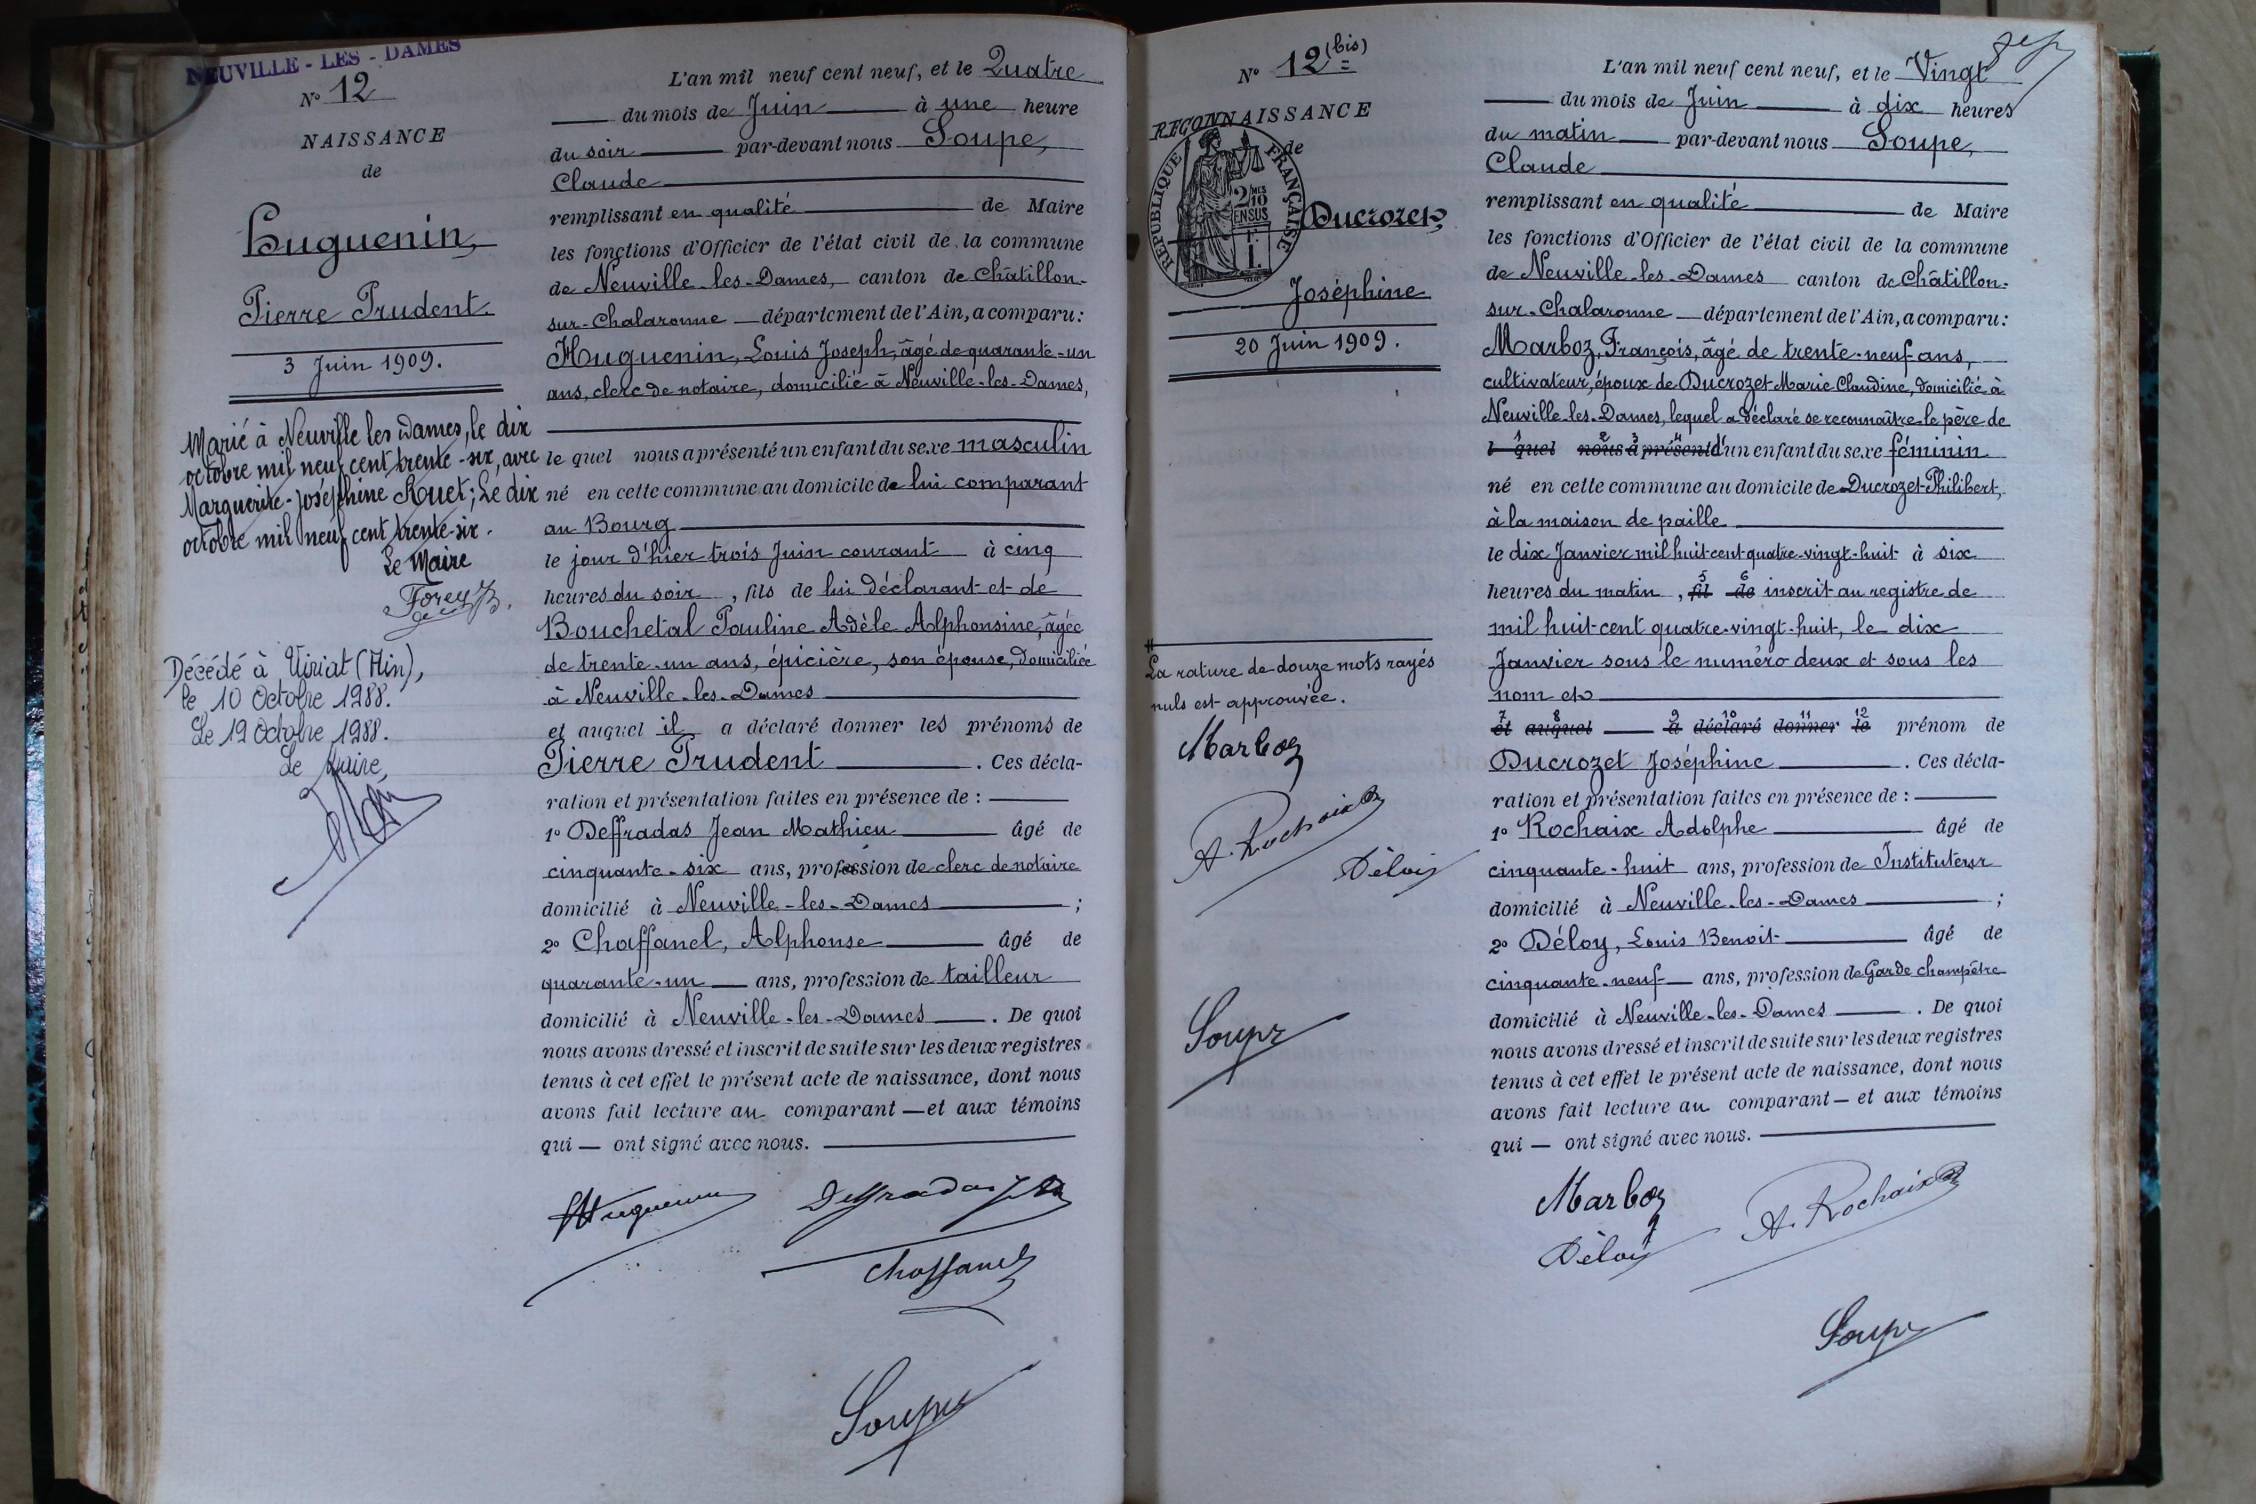 NEUVILLE - LES - DAMES
N° 12
NAISSANCE
de
Huguenin,
Pierre Prudent.
3 Juin 1909.
Marié à Neuville les Dames, le dix
octobre mil neuf cent trente-six, avec
Marguerite-Joséphine Ruet; Le dix
octobre mil neuf cent trente-six.
Le Maire
Décédé à Viriat (Ain),
le 10 Octobre 1988.
Le 19 Octobre 1988.
Le Maire,
L'an mil neuf cent neuf, et le Quatre
du mois de Juin à une heure
du soir par-devant nous Soupe,
Claude
remplissant en qualité de Maire
les fonctions d'Officier de l'état civil de la commune
de Neuville-les-Dames, canton de Châtillon-
sur-Chalaronne département de l'Ain, a comparu:
Huguenin, Louis Joseph, âgé de quarante-un
ans, clerc de notaire, domicilié à Neuville-les-Dames,
le quel nous a présenté un enfant du sexe masculin
né en cette commune au domicile de lui comparant
au Bourg
le jour d'hier trois Juin courant à cinq
heures du soir, fils de lui déclarant et de
Bouchetal Pauline Adèle Alphonsine, âgée
de trente-un ans, épicière, son épouse, domiciliée
à Neuville-les-Dames
et auquel il a déclaré donner les prénoms de
Pierre Prudent. Ces décla-
ration et présentation faites en présence de :
1° Deffradas Jean Mathieu âgé de
cinquante-six ans, profession de clerc de notaire
domicilié à Neuville-les-Dames ;
2° Chaffanel, Alphonse âgé de
quarante-un ans, profession de tailleur
domicilié à Neuville-les-Dames. De quoi
nous avons dressé et inscrit de suite sur les deux registres
tenus à cet effet le présent acte de naissance, dont nous
avons fait lecture au comparant et aux témoins
qui ont signé avec nous.
Huguenin
Deffradas
Chaffanel
Soupe
N° 12 (bis)
RECONNAISSANCE
de
RÉPUBLIQUE FRANÇAISE
2/10 MES
EN SUS
Ducrozet,
Joséphine
20 Juin 1909.
La rature de douze mots rayés
nuls est approuvée.
Marboz
A. Rochaix
Déloy
Soupe
L'an mil neuf cent neuf, et le Vingt
du mois de Juin à dix heures
du matin par-devant nous Soupe,
Claude
remplissant en qualité de Maire
les fonctions d'Officier de l'état civil de la commune
de Neuville-les-Dames canton de Châtillon-
sur-Chalaronne département de l'Ain, a comparu:
Marboz, François, âgé de trente-neuf ans,
cultivateur, époux de Ducrozet Marie Claudine, domicilié à
Neuville-les-Dames, lequel a déclaré se reconnaître le père de
l quel nous a présenté d'un enfant du sexe féminin
né en cette commune au domicile de Ducrozet Philibert,
à la maison de paille
le dix Janvier mil huit cent quatre-vingt-huit à six
heures du matin, fil de inscrit au registre de
mil huit cent quatre-vingt-huit, le dix
Janvier sous le numéro deux et sous les
nom et
et auquel a déclaré donner le prénom de
Ducrozet Joséphine. Ces décla-
ration et présentation faites en présence de :
1° Rochaix Adolphe âgé de
cinquante-huit ans, profession de Instituteur
domicilié à Neuville-les-Dames ;
2° Déloy, Louis Benoit âgé de
cinquante-neuf ans, profession de Garde champêtre
domicilié à Neuville-les-Dames. De quoi
nous avons dressé et inscrit de suite sur les deux registres
tenus à cet effet le présent acte de naissance, dont nous
avons fait lecture au comparant et aux témoins
qui ont signé avec nous.
Marboz
A. Rochaix
Déloy
Soupe